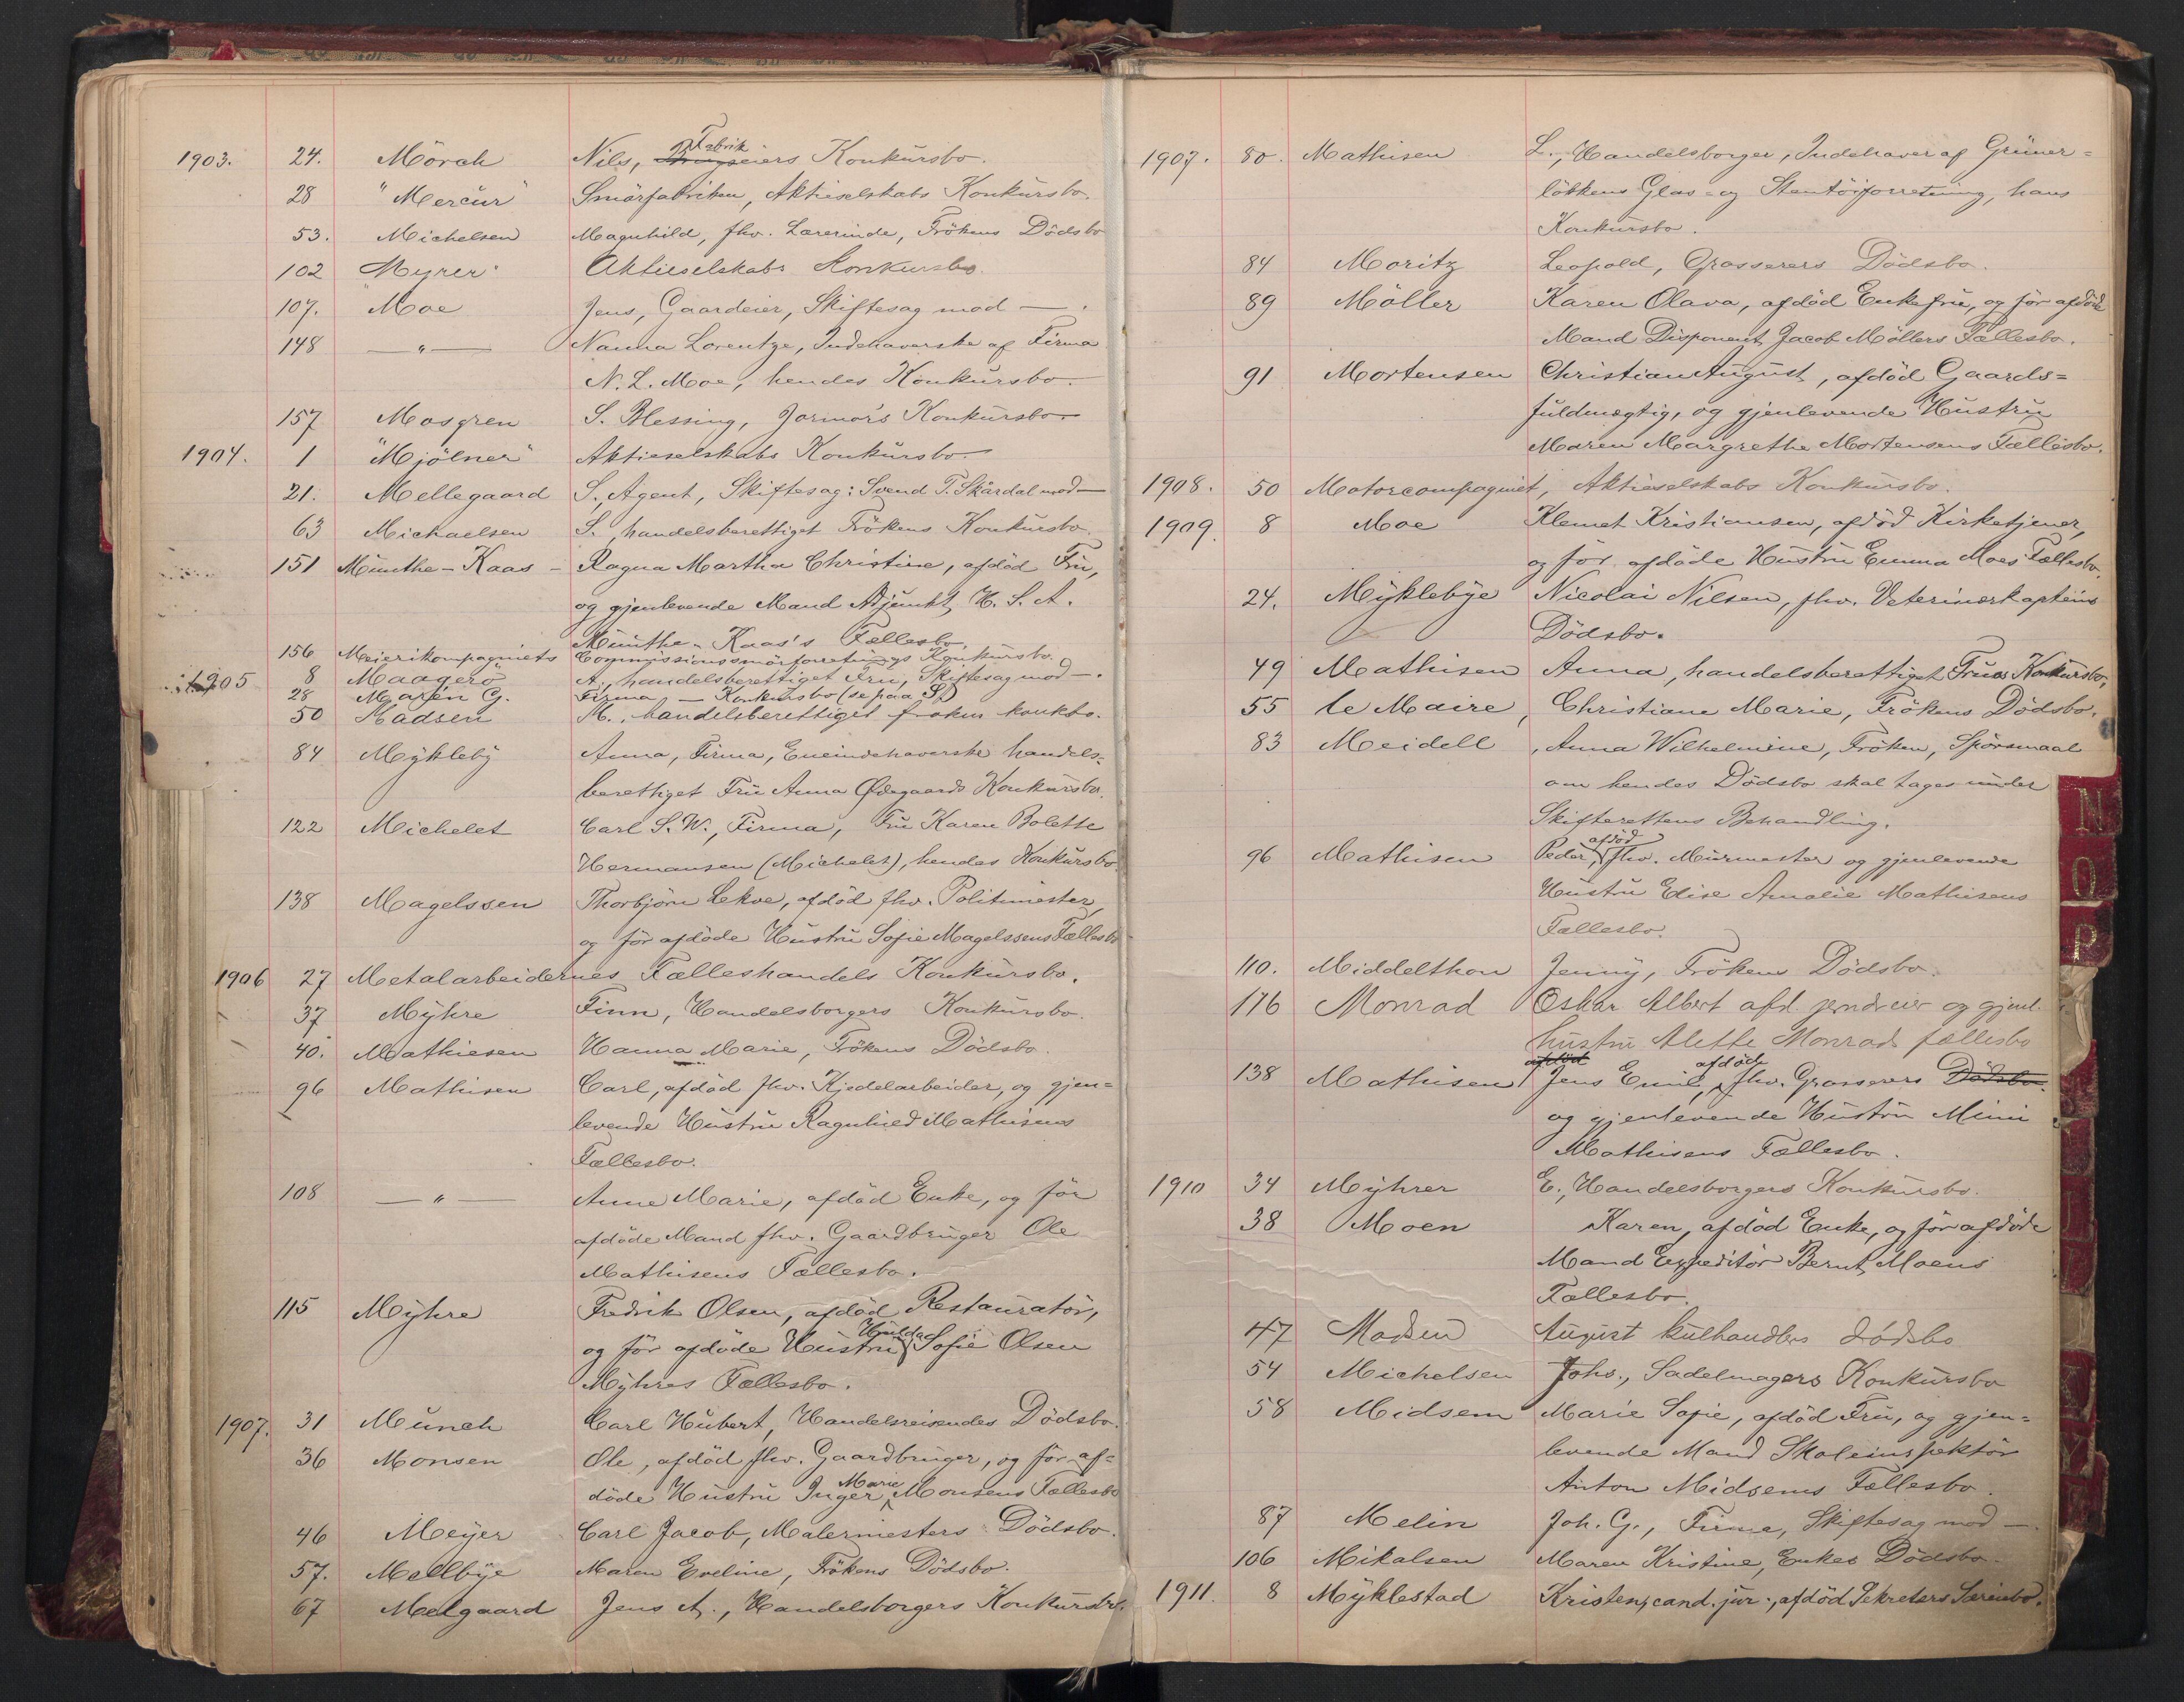 1903. 24. Mörch Nils, Fabrikeiers Konkursbo.
28 "Mercur" Smörfabriken, Aktieselskabs Konkursbo.
53. Michelsen Magnhild, fhv. Lærerinde, Frökens Dödsbo
102 "Myrer" Aktieselskabs Konkursbo.
107. Moe Jens, Gaardeier, Skiftesag mod — .
148 — " — Nanna Lorentze, Indehaverske af Firma
N. L. Moe, hendes Konkursbo.
157 Mosgren S. Blessing, Jormor's Konkursbo
1904. 1 "Mjölner" Aktieselskabs Konkursbo
21. Mellegaard S., Agent, Skiftesag: Svend T. Skårdal mod —
63 Michaelsen S., handelsberettiget Frökens Konkursbo
151 Münthe-Kaas - Ragna Martha Christine, afdöd Fru,
og gjenlevende Mand Adjunkt H. S. A.
Münthe-Kaas's Fællesbo.
156 Meierikompagniets Commissionssmörforretnings Konkursbo.
1905 8 Maagerö A., handelsberettiget Fru, Skiftesag mod — .
28 Maren G. Firma — Konkursbo (se paa S)
50 Madsen M., handelsberettiget frøken konkbo.
84 Mykleby Anna, Firma, Eneindehaverske handels-
berettiget Fru Anna Ødegaards Konkursbo.
122 Michelet Carl S. W., Firma, Fru Karen Bolette
Hermansen (Michelet), hendes Konkursbo.
138 Magelssen Thorbjörn Lekve, afdöd fhv. Politimester,
og för afdöde Hustru Sofie Magelssens Fællesbo
1906 27 Metalarbeidernes Fælleshandels Konkursbo.
37 Myhre Finn, Handelsborgers Konkursbo.
40. Mathiesen Hanna Marie, Frökens Dödsbo.
96 Mathisen Carl, afdöd fhv. Kjedelarbeider, og gjen-
levende Hustru Ragnhild Mathisens
Fællesbo.
108 — " — Anne Marie, afdöd Enke, og för
afdöde Mand fhv. Gaardbruger Ole
Mathisens Fællesbo.
115 Myhre Fredrik Olsen, afdöd Restauratör,
og för afdöde Hustru Hulda Sofie Olsen
Myhres Fællesbo.
1907. 31 Münch Carl Hubert, Handelsreisendes Dödsbo.
36 Monsen Ole, afdöd fhv. Gaardbruger, og för af-
döde Hustru Inger Marie Monsens Fællesbo
46 Meyer Carl Jacob, Malermesters Dödsbo.
57. Mellbye Maren Eveline, Frökens Dödsbo.
67 Melgaard Jens A., Handelsborgers Konkursbo.
1907. 80. Mathisen L., Handelsborger, Indehaver af Grüner-
lökkens Glas- og Stentöiforretning, hans
Konkursbo.
84 Moritz Leopold, Grosserers Dödsbo.
89 Möller Karen Olava, afdöd Enkefru, og för afdöde
Mand Disponent Jacob Möllers Fællesbo.
91 Mortensen Christian August, afdöd Gaards-
fuldmægtig, og gjenlevende Hustru
Maren Margrethe Mortensens Fællesbo.
1908. 50 Motorcompagniet, Aktieselskabs Konkursbo.
1909. 8 Moe Klemet Kristiansen, afdöd Kirketjener,
og för afdöde Hustru Emma Moes Fællesbo.
24. Myklebye Nicolai Nilsen, fhv. Veterinærkapteins
Dödsbo.
49 Mathisen Anna, handelsberettiget Frues Konkursbo,
55 le Maire, Christiane Marie, Frökens Dödsbo.
83 Meidell, Anna Wilhelmine, Fröken, Spörsmaal
om hendes Dödsbo skal tages under
Skifterettens Behandling.
96 Mathisen Peder, afdöd fhv. Murmester og gjenlevende
Hustru Elise Amalie Mathisens
Fællesbo.
110. Middelthon Jenny, Frökens Dödsbo.
116 Monrad Oskar Albert afd. jerndreier og gjenl.
hustru Alette Monrads fællesbo
138 Mathisen afdöd Jens Emil, afdöde fhv. Grosserers Dödsbo.
og gjenlevende Hustru Mimi
Mathisens Fællesbo.
1910 34 Myhrer E., Handelsborgers Konkursbo.
38 Moen Karen, afdöd Enke, og för afdöde
Mand Expeditör Bernt Moens
Fællesbo.
47 Madsen August kulhandlers dödsbo
54 Michelsen Johs., Sadelmagers Konkursbo
58 Midsem Marie Sofie, afdöd Fru, og gjen-
levende Mand Skoleinspektör
Anton Midsems Fællesbo.
87 Melin Joh. G., Firma, Skiftesag mod — .
106 Mikalsen Maren Kristine, Enkes Dödsbo.
1911. 8 Myklestad Kristen, cand. jur., afdöd Sekretærs Særeiebo.
N
O
P